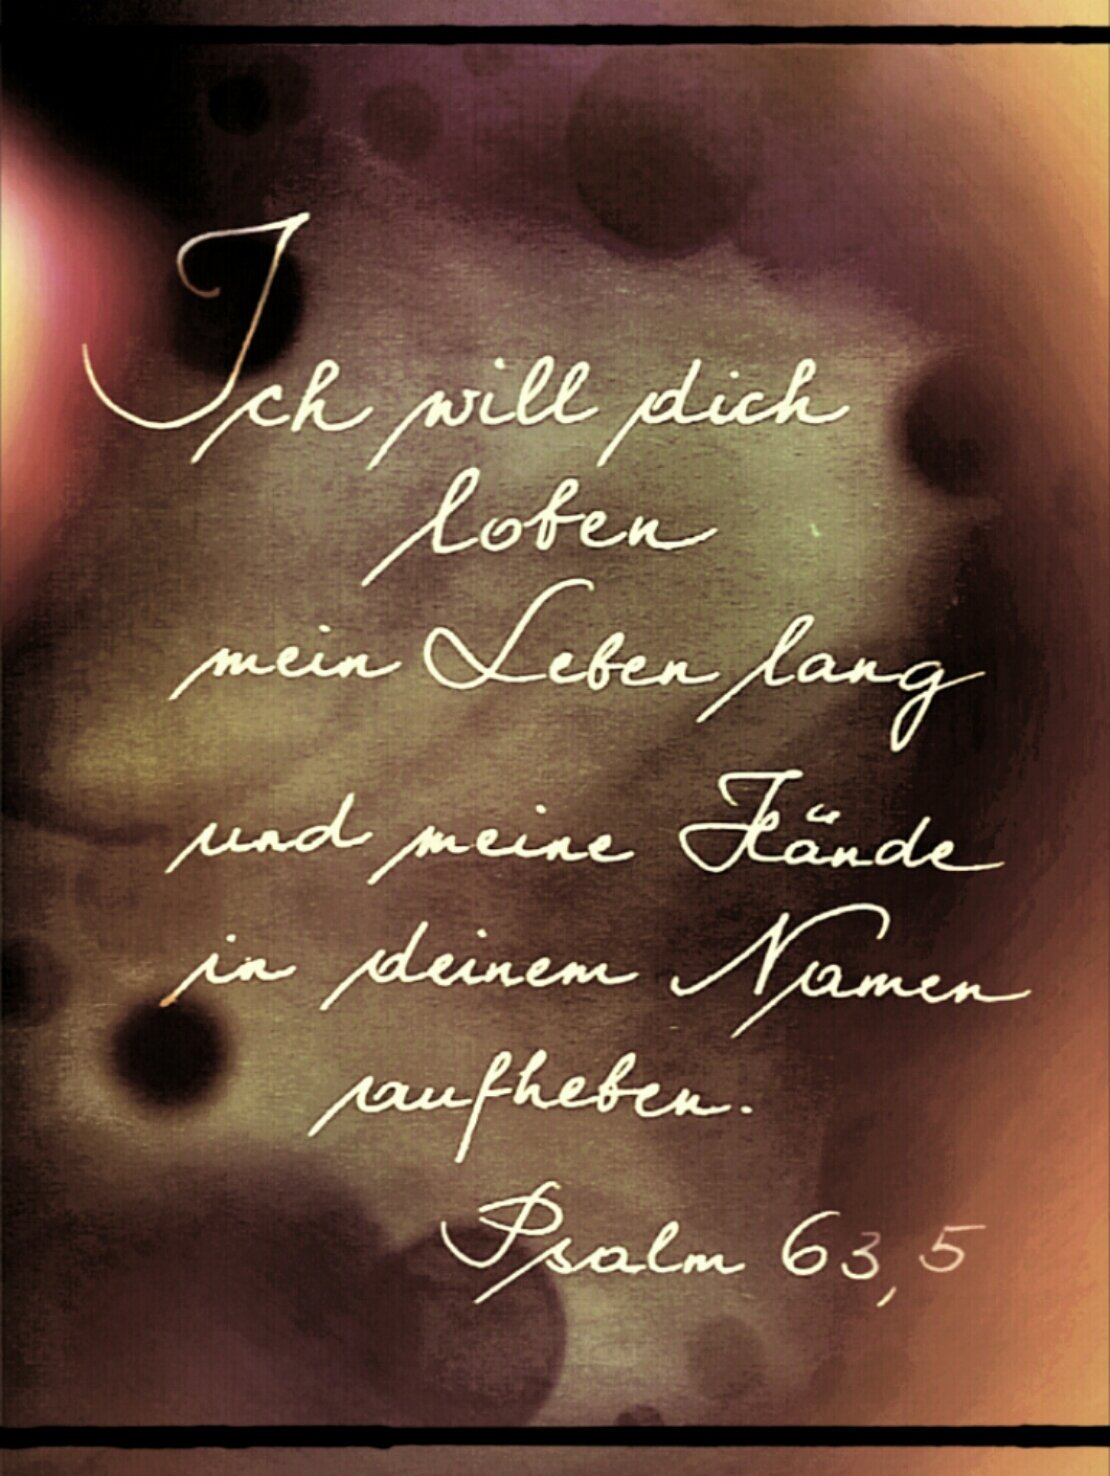 Ich will dich
loben
mein Leben lang
und meine Hände
in deinem Namen
aufheben.
Psalm 63,5